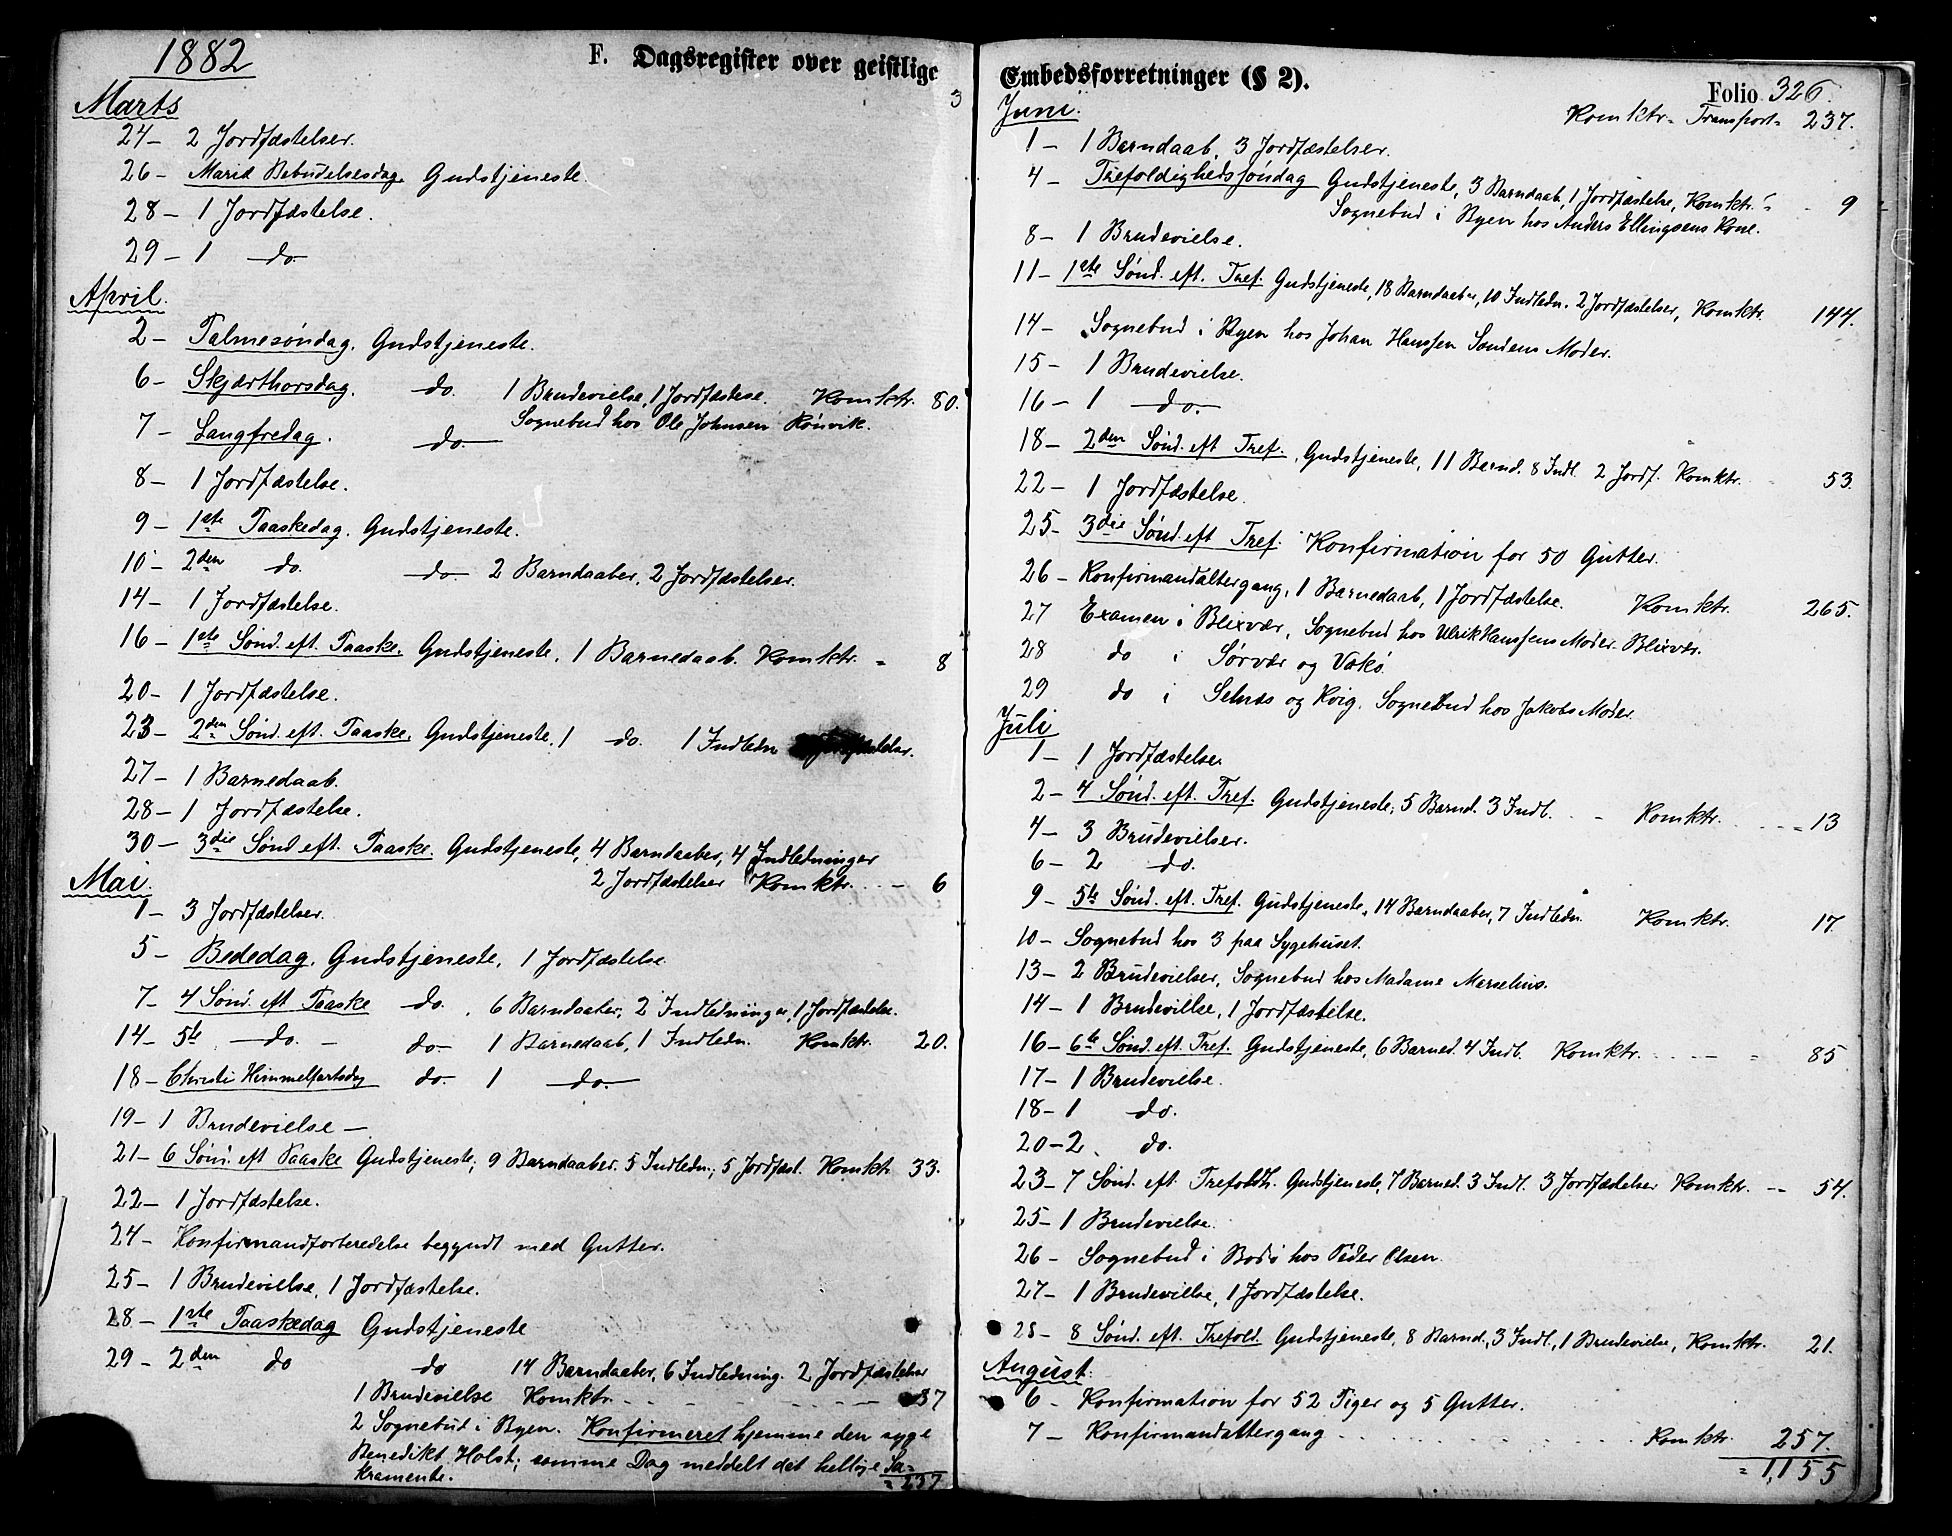 1882
F. Dagsregister over geistlige
3
Marts
24 - 2 Jordfæstelser.
26 - Mariæ Bebudelsesdag. Gudstjeneste.
28 - 1 Jordfæstelse.
29 - 1 do
April.
2 - Palmesøndag. Gudstjeneste.
6 - Skjærthorsdag. do. 1 Brudevielse, 1 Jordfæstelse. Komktr. 80.
7 - Langfredag. do Sognebud hos Ole Johnsen Rönvik.
8 - 1 Jordfæstelse.
9 - 1ste Paaskedag. Gudstjeneste.
10 - 2den do. do 2 Barndaaber, 2 Jordfæstelser.
14 - 1 Jordfæstelse.
16 - 1ste Sønd. eft. Paaske. Gudstjeneste, 1 Barnedaab. Komktr. = 8
20 - 1 Jordfæstelse.
23 - 2den Sønd. eft. Paaske. Gudstjeneste, 1 do. 1 Indledn
27 - 1 Barnedaab.
28 - 1 Jordfæstelse.
30 - 3die Sønd eft. Paaske. Gudstjeneste, 4 Barndaaber, 4 Indledninger
2 Jordfæstelser Komktr. 6
Mai.
1 - 3 Jordfæstelser.
5 - Bededag. Gudstjeneste, 1 Jordfæstelse
7 - 4 Sønd. eft Paaske do. 6 Barndaaber, 2 Indledninger, 1 Jordfæstelse.
14 - 5te do. - do. 1 Barnedaab, 1 Indledn. Komktr. 20.
18 - Christi Himmelfartsdag do. 1 do.
19 - 1 Brudevielse -
21 - 6 Sønd. eft Paaske Gudstjeneste, 9 Barndaaber. 5 Indledn., 5 Jordfæst. Komktr. 33.
22 - 1 Jordfæstelse.
24 - Konfirmandforberedelse begyndt med Gutter.
25 - 1 Brudevielse, 1 Jordfæstelse.
28 - 1ste Paaskedag Gudstjeneste
29 - 2den do do 14 Barndaaber, 6 Indledning. 2 Jordfæstelser
1 Brudevielse Komktr. 37
2 Sognebud i Byen. Konfirmeret hjemme den syge
Benedikt Holst; samme Dag meddelt det hellige Sa=
kramente. = 237
Embedsforretninger (§ 2).
Folio 326.
Juni.
Komktr. Transport = 237.
1 - 1 Barndaab, 3 Jordfæstelser.
4 - Trefoldighedssøndag Gudstjeneste, 3 Barndaab, 1 Jordfæstelse, Komktr. 9
Sognebud i Byen hos Anders Ellingsens Kone.
8 - 1 Brudevielse.
11 - 1ste Sønd. eft. Tref. Gudstjeneste, 18 Barndaaber, 10 Indledn. 2 Jordfæstelser, Komktr. 144.
14 - Sognebud i Byen hos Johan Hanssen Sandens Moder.
15 - 1 Brudevielse.
16 - 1 do.
18 - 2den Sønd. eft Tref. Gudstjeneste, 11 Barnd. 8 Indl. 2 Jordf. Komktr. 53.
22 - 1 Jordfæstelse.
25 - 3die Sønd. eft Tref. Konfirmation for 50 Gutter.
26 - Konfirmandaltergang, 1 Barnedaab, 1 Jordfæstelse. Komktr. 265.
27 Examen i Blixvær, Sognebud hos Ulrik Hanssens Moder. Blixvær.
28 do i Sørvær og Vokø.
29 do i Selnæs og Kvig. Sognebud hos Jakobs Moder.
Juli
1 - 1 Jordfæstelse
2 - 4 Sønd. eft. Tref. Gudstjeneste, 5 Barnd. 3 Indl. Komktr. 13
4 - 3 Brudevielser.
6 - 2 do.
9 - 5te Sønd. eft. Tref. Gudstjeneste, 14 Barndaaber, 7 Indledn. Komktr. 17.
10 - Sognebud hos 3 paa Sygehuset.
13 - 2 Brudevielser, Sognebud hos Madame Marselius.
14 - 1 Brudevielse, 1 Jordfæstelse.
16 - 6te Sønd. eft. Tref. Gudstjeneste, 6 Barned. 4 Indl. Komktr. 85
17 - 1 Brudevielse.
18 - 1 do.
20 - 2 do.
23 - 7 Sønd. eft. Trefoldh. Gudstjeneste, 7 Barned. 3 Indl. 3 Jordfæstelser Komktr. 54.
25 - 1 Brudevielse.
26 - Sognebud i Bodø hos Peder Olsen.
27 - 1 Brudevielse, 1 Jordfæstelse.
28 - 8 Sønd. eft. Trefold. Gudstjeneste, 8 Barnd., 3 Indl., 1 Brudevielse, Komktr. 21.
August.
6 - Konfirmation for 52 Piger og 5 Gutter.
7 - Konfirmandaltergang Komktr. 257.
= 1,155